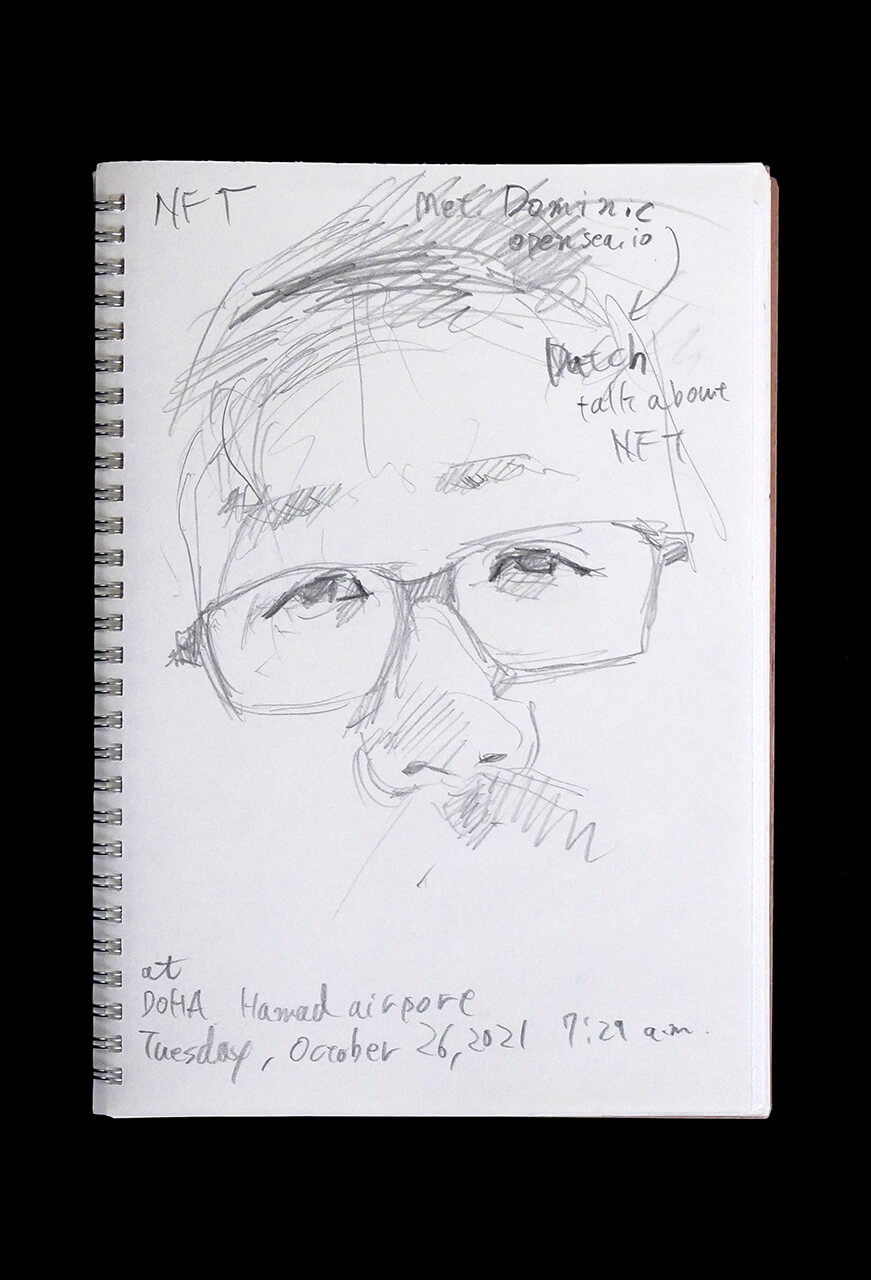 NFT
Met. Dominic
opensea.io
Dutch
talk about
NFT
at
DOHA Hamad airport
Tuesday, October 26, 2021 7:29 a.m.